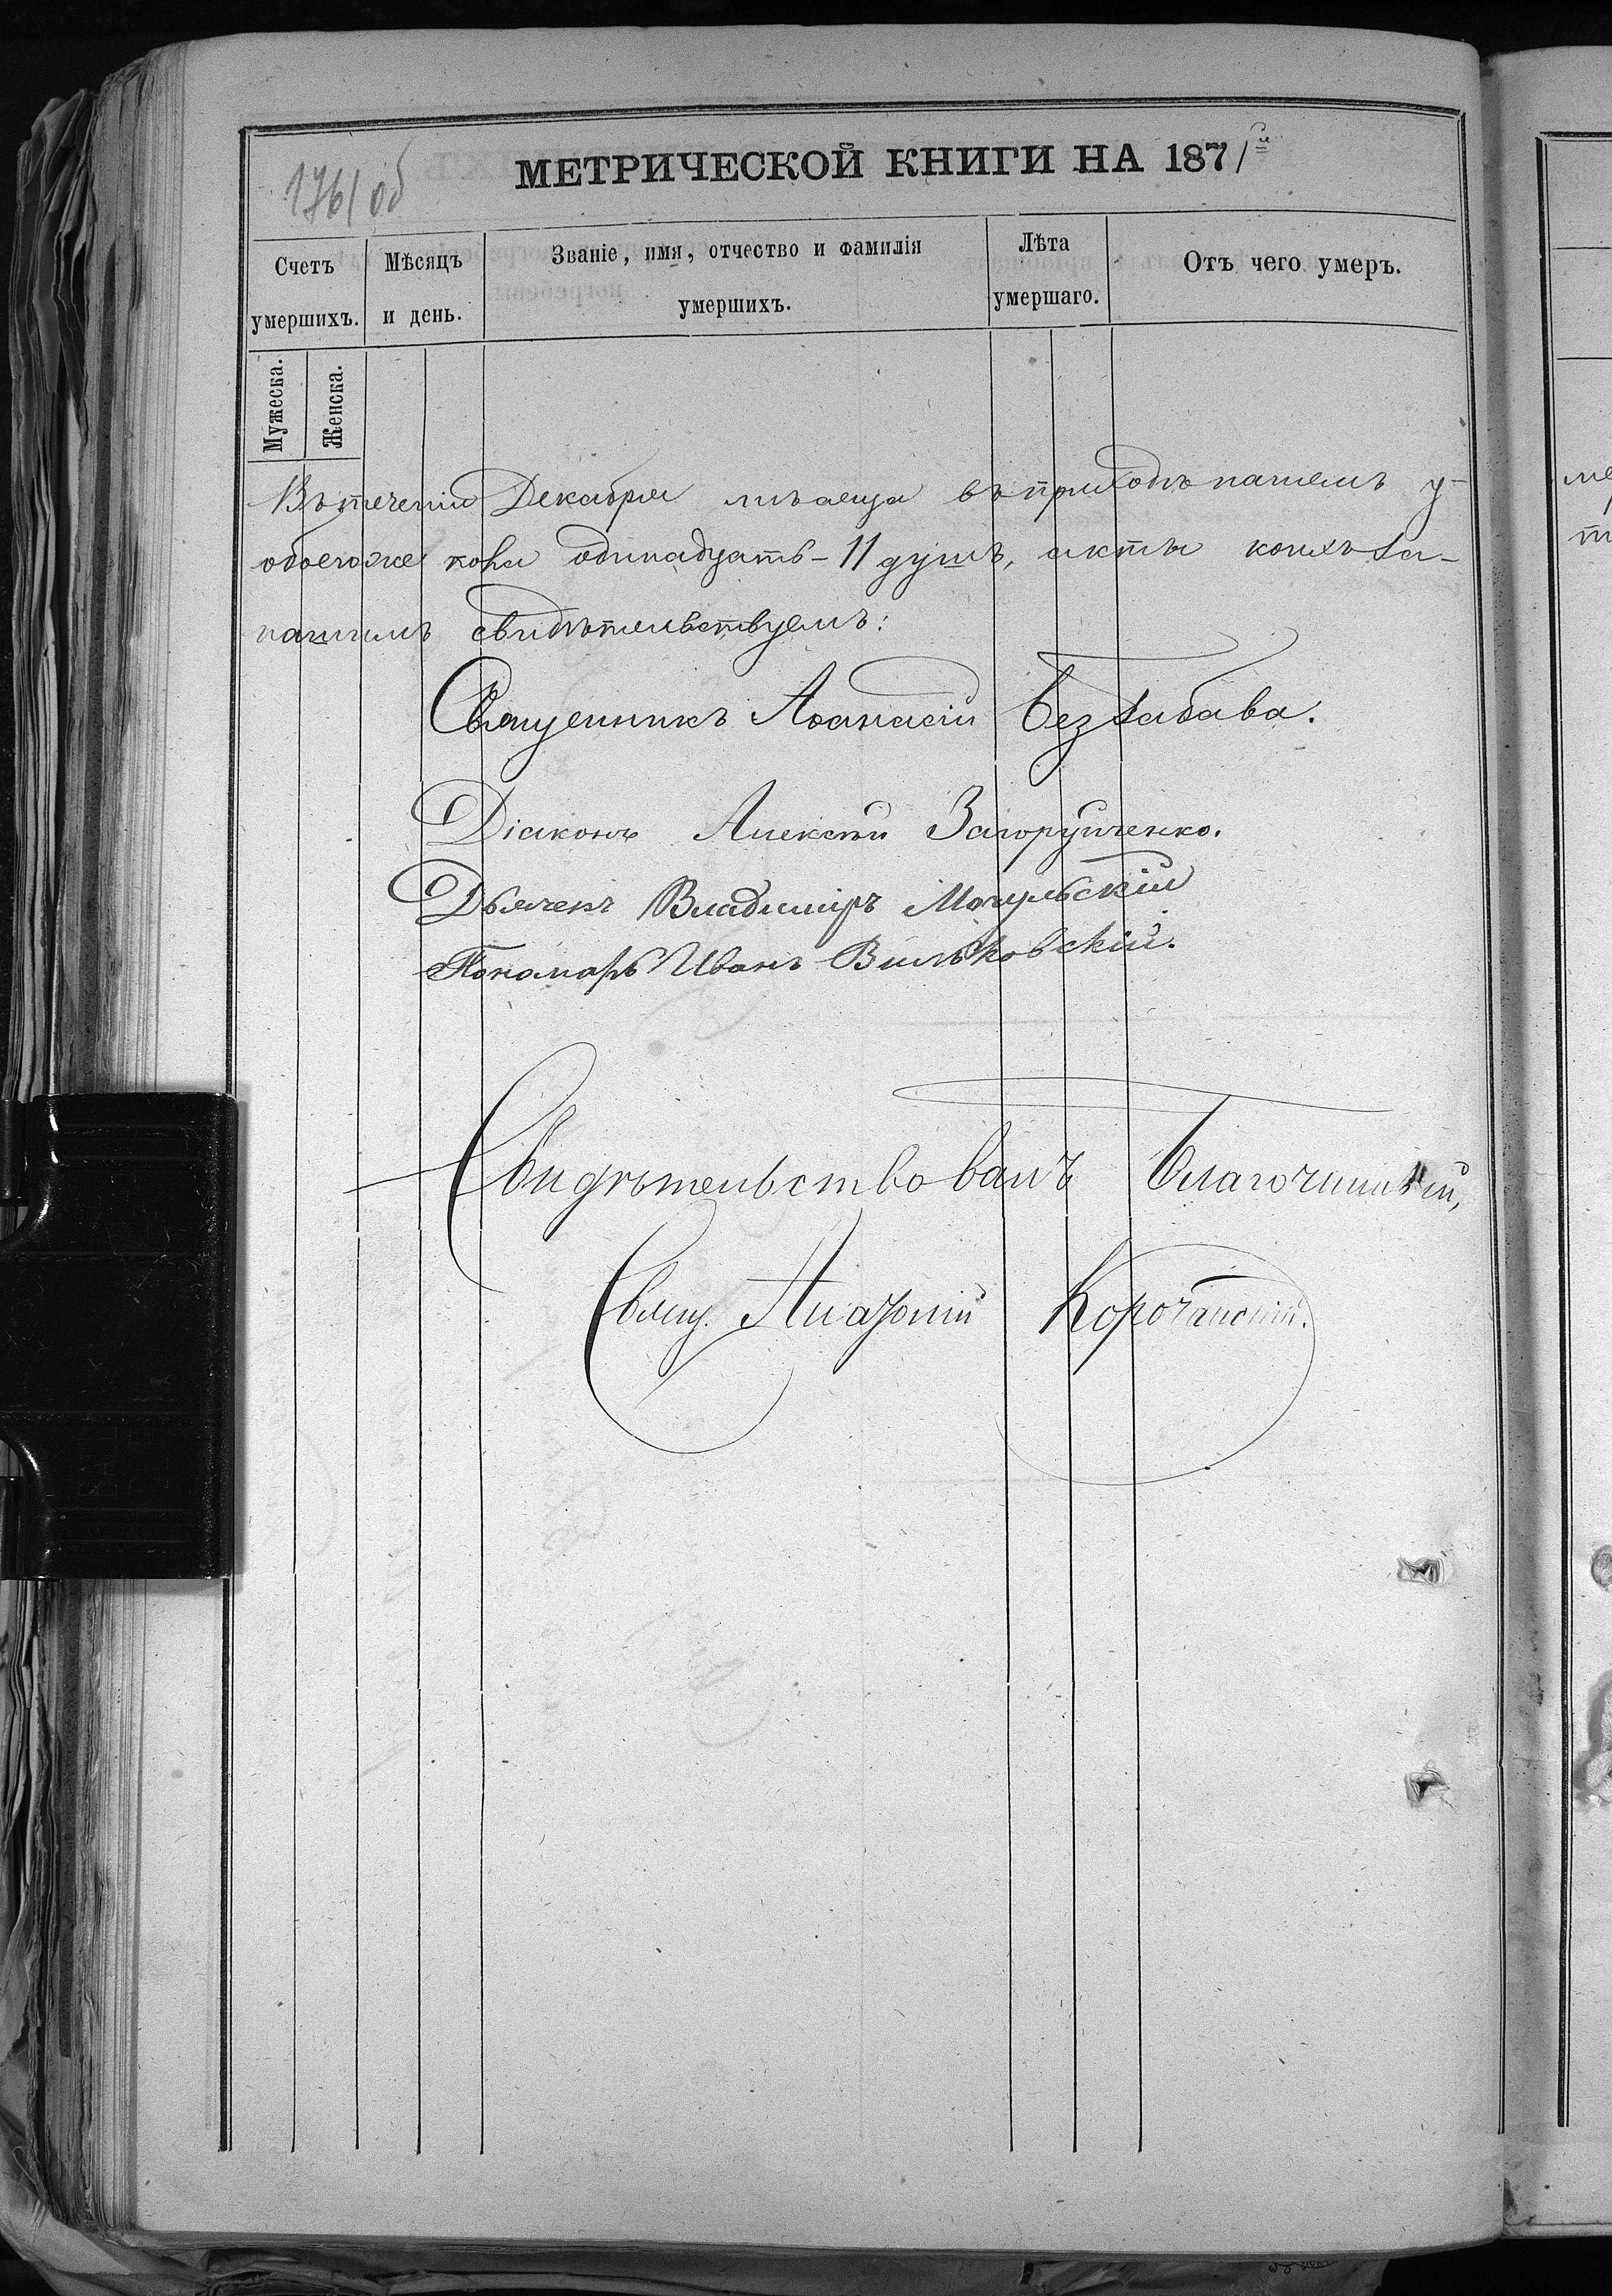 176/об
МЕТРИЧЕСКОЙ КНИГИ НА 1871й
Счетъ умершихъ.
Мужеска.
Женска.
Мѣсяцъ и день.
Званіе, имя, отчество и фамилія умершихъ.
Лѣта умершаго.
Отъ чего умеръ.
Въ теченіи Декабря мѣсяца въ приходѣ нашемъ у-
обоегоже пола одинадцать - 11 душъ, акты коихъ за-
нашимъ свидѣтельствуемъ:
Священникъ Аѳанасій Беззабава.
Діаконъ Алексѣй Загоруйченко.
Дьячекъ Владиміръ Могульскій
Пономарь Иванъ Вильковскій.
Свидѣтельствовалъ Благочинный,
Свящ. Корочанскій.